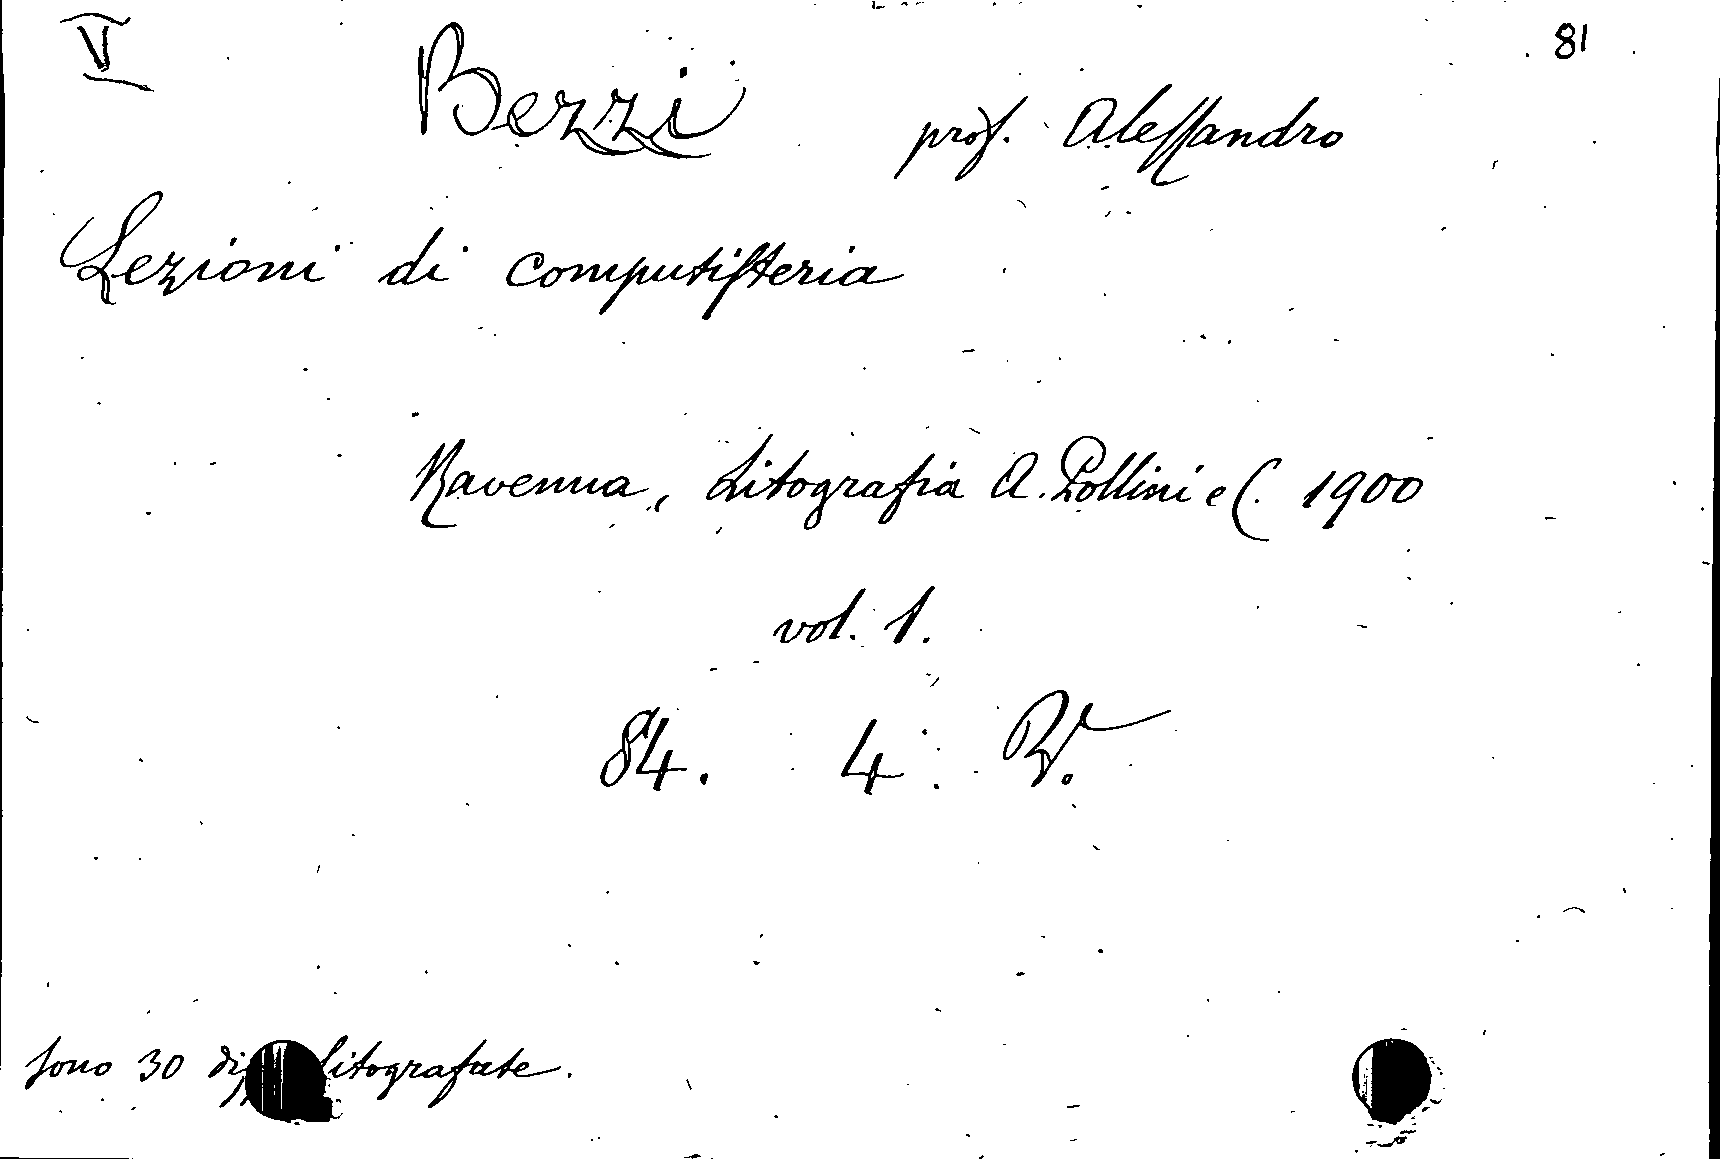 V 81
Bezzi prof. Alessandro
Lezioni di computisteria
Ravenna, Litografia A. Pollini e C. 1900
vol. 1.
84. 4 R.
Sono 30 litografate.